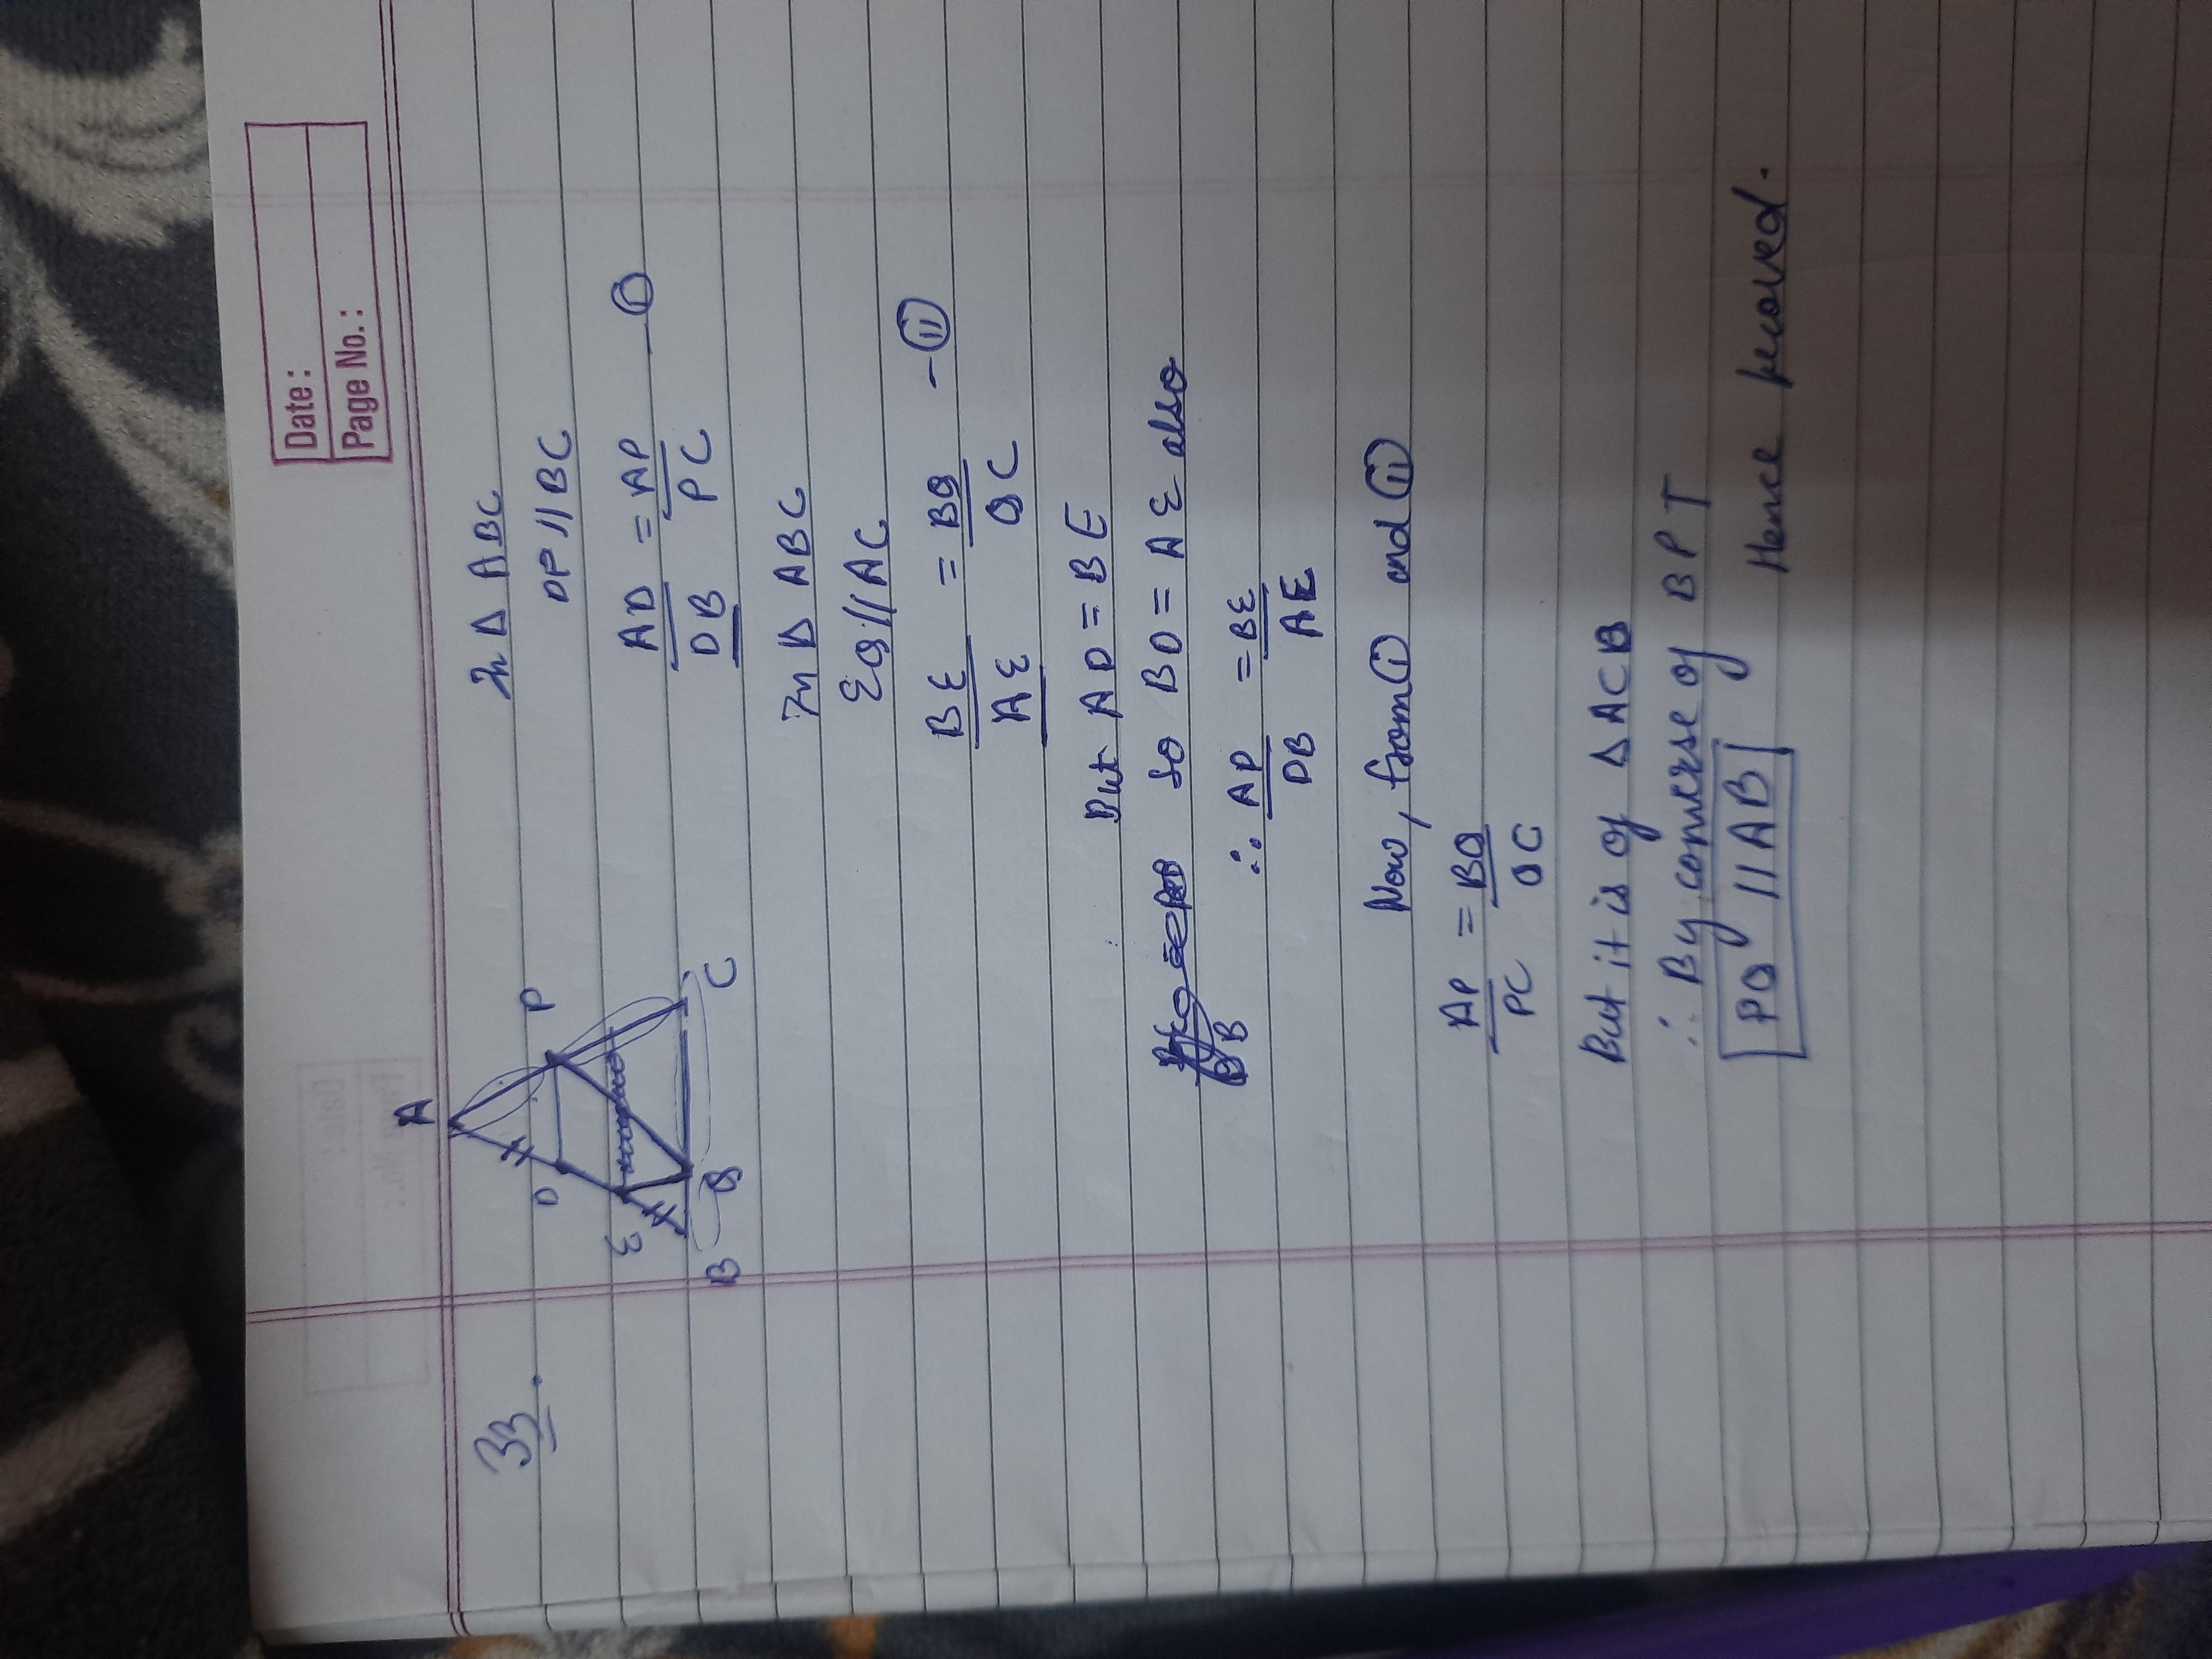 Date :
Page No. :
33.
A
D
P
E
B
Q
C
In Δ ABC
DP // BC
AD = AP — (i)
DB PC
In Δ ABC
EQ // AC
BE = BQ - (ii)
AE QC
But AD = BE
so BD = AE also
∴ AD = BE
DB AE
Now, from (i) and (ii)
AP = BQ
PC QC
But it is of Δ ACB
∴ By converse of BPT
PQ // AB Hence proved.